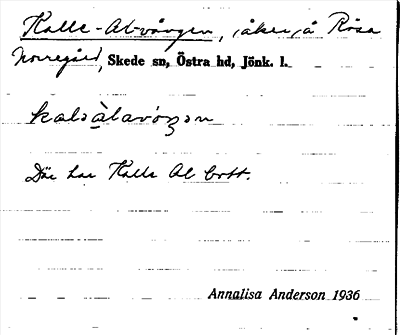 Kalle-Alvången, åker, å Rösa
Norregård, Skede sn, Östra hd, Jönk. l.
kaləàlavòŋən
Där har Kalle Al bott.
Annalisa Anderson 1936